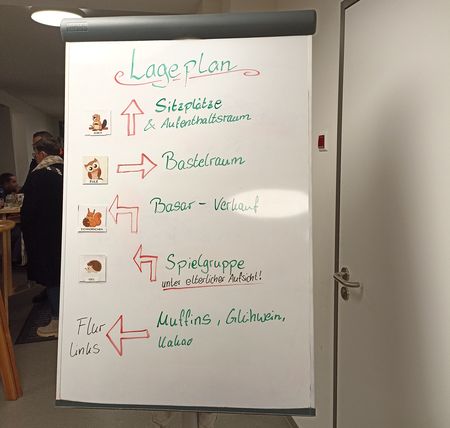 Lageplan
Sitzplätze
& Aufenthaltsraum
EULE
Bastelraum
Basar - Verkauf
EICHHÖRNCHEN
Spielgruppe
unter elterlicher Aufsicht!
IGEL
Flur
links
Muffins, Glühwein,
Kakao